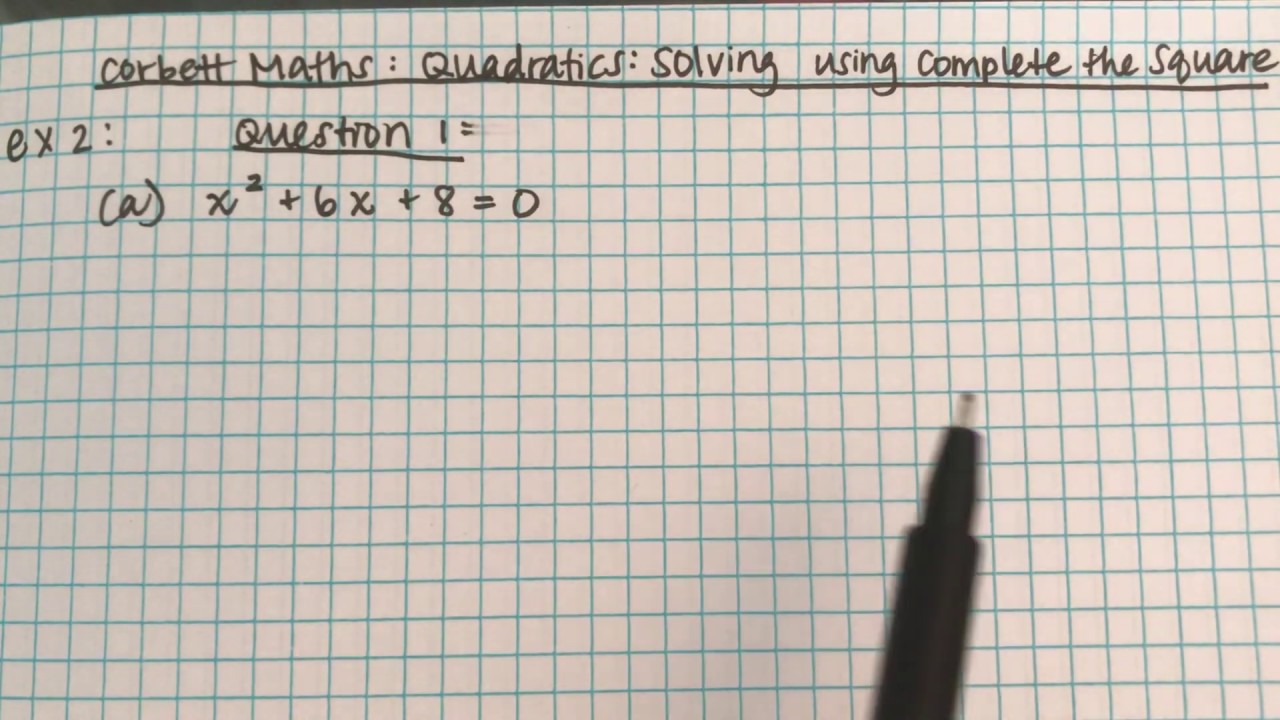 Corbett Maths : Quadratics: Solving using Complete the Square
ex 2: Question 1:
(a) x² + 6x + 8 = 0